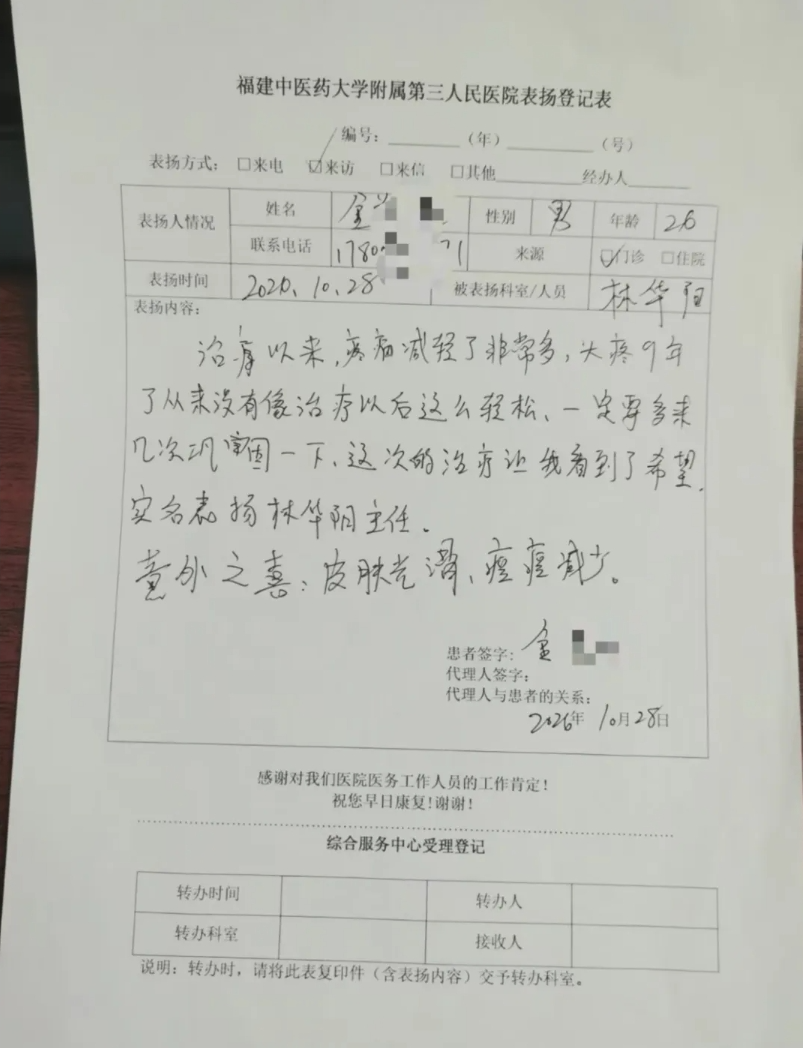 福建中医药大学附属第三人民医院表扬登记表
编号：______（年）________（号）
表扬方式：□来电 ☑来访 □来信 □其他________ 经办人______
表扬人情况 姓名 金 性别 男 年龄 26
联系电话 1780 71 来源 ☑门诊 □住院
表扬时间 2020.10.28 被表扬科室/人员 林华阳
表扬内容：
治疗以来，疼痛减轻了非常多，头疼9年
了从来没有像治疗以后这么轻松、一定要多来
几次巩固一下、这次的治疗让我看到了希望.
实名表扬林华阳主任.
意外之喜：皮肤光滑、痘痘减少。
患者签字：金
代理人签字：
代理人与患者的关系：
年 10月28日
感谢对我们医院医务工作人员的工作肯定！
祝您早日康复！谢谢！
综合服务中心受理登记
转办时间 转办人
转办科室 接收人
说明：转办时，请将此表复印件（含表扬内容）交予转办科室。